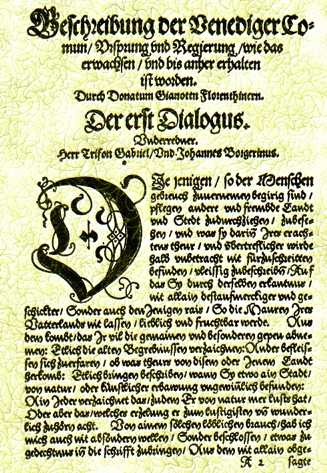 Beschreibung der Venediger Co-
mun / Ursprung vnd Regierung / wie das
erwachsen / vnd bis anher erhalten
ist worden.
Durch Donatum Gianottn Florenthinern.
Der erst Dialogus.
Vnderredner.
Herr Trifon Gabriel / Vnd Johannes Borgerinus.
Die jenigen / so der Menschen
gebreuch zuuernemen begirig sind /
pflegen andere vnd frembde Landt
vnd Stedt zudurchziehen / zubese-
hen / vnd was sy darinn jres erach-
tens theur / vnd vbertreflicher wirde
halb vnbetracht nit fürzuschreitten
befunden / vleissig zubeschreiben / Auf
das Sy durch derselben erkantnus /
nit allain destaufmerckiger vnd ge-
schickter / Sonder auch den Jenigen rais / So die Mauren Jres
Vatterlands nit lassen / lieblich vnd fruchtbar werde. Aus
dem kombt / das Jr vil die gemainen vnd besonderen gepen
nemen: Etlich die alten Begrebnussen verzaichnen: Ander befleis-
sen sich zuerfaren / ob was theurs von disem oder Jenem Landt
herkomb: Etlich bringen beschriben / warin Sy etwo ain Stadt /
von natur / oder künstlicher erbawung vngewinlich befunden:
Ain Jeder verzaichnet das / zudem Er von natur mer lusts hat /
Oder aber das / welcher erzelung er zum lustigisten vnd wunder-
lich zuhörn acht. Von ainem sölchen löblichen brauch / hab ich
mich auch nit absöndern wellen / Sonder beschlossen / etwas zu
gedechtnus in die schrifft zubringen / Aus dem mit allain abzune-
A 2 sagte